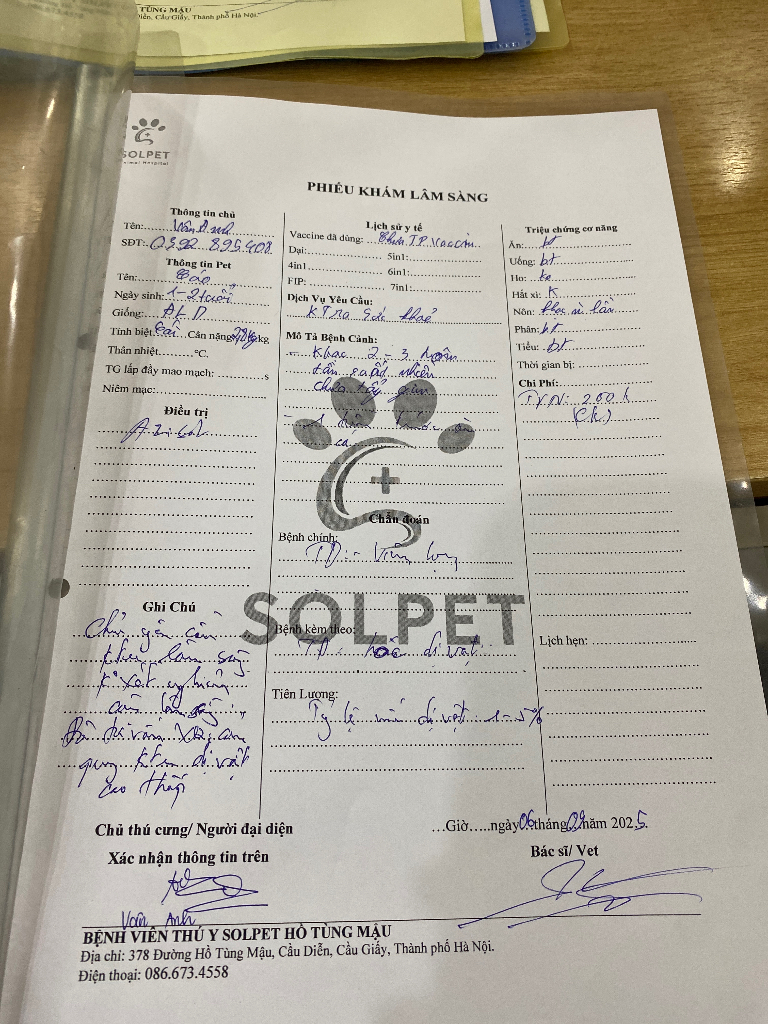 TÙNG MẬU
Diễn, Cầu Giấy, Thành phố Hà Nội.
SOLPET
Animal Hospital
PHIẾU KHÁM LÂM SÀNG
Thông tin chủ
Tên: Vân Anh
SĐT: 0392 895 408
Thông tin Pet
Tên: Cáo
Ngày sinh: 1-2 tuổi
Giống: ALD
Tính biệt: Cái Cân nặng: kg
Thân nhiệt: °C.
TG lấp đầy mao mạch: s
Niêm mạc:
Điều trị
Ghi Chú
Chủ yêu cầu
khám lâm sàng
K xét nghiệm
quang
cao thấp
Lịch sử y tế
Vaccine đã dùng: Chưa TP Vaccin
Dại: 5in1:
4in1: 6in1:
FIP: 7in1:
Dịch Vụ Yêu Cầu:
KTra sức khoẻ
Mô Tả Bệnh Cảnh:
- Khạc 2-3 hôm
tần suất nhiều
chưa tẩy giun
Chẩn đoán
Bệnh chính:
TD: Viêm họng
SOLPET
Bệnh kèm theo:
TD: hóc dị vật
Tiên Lượng:
Tỷ lệ dị vật 1-5%
Triệu chứng cơ năng
Ăn: bt
Uống: bt
Ho: ko
Hắt xì: K
Nôn: khạc lần
Phân: bt
Tiểu: bt
Thời gian bị:
Chi Phí:
200k
(ck)
Lịch hẹn:
Chủ thú cưng/ Người đại diện
Xác nhận thông tin trên
Vân Anh
…Giờ…..ngày 06 tháng 09 năm 2025.
Bác sĩ/ Vet
BỆNH VIỆN THÚ Y SOLPET HỒ TÙNG MẬU
Địa chỉ: 378 Đường Hồ Tùng Mậu, Cầu Diễn, Cầu Giấy, Thành phố Hà Nội.
Điện thoại: 086.673.4558